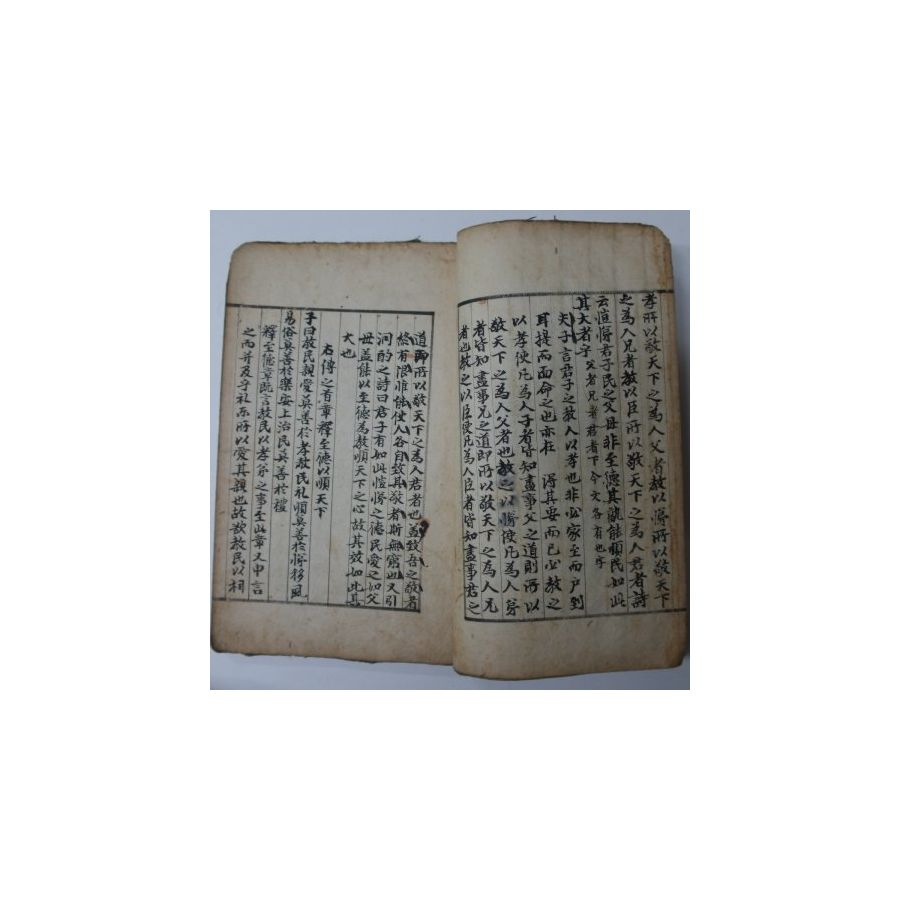 孝所以敬天下之為人父者教以悌所以敬天下
之為人兄者教以臣所以敬天下之為人君者詩
云愷悌君子民之父母非至德其孰能順民如此
其大者乎 父者兄者君者下今文各有也字
夫子言君子之教人以孝也非必家至而戶到
耳提而面命之也亦在 得其要而已必教之
以孝使凡為人子者皆知盡事父之道則所以
敬天下之為人父者也教之以悌使凡為人弟
者皆知盡事兄之道即所以敬天下之為人兄
者也教之以臣使凡為人臣者皆知盡事君之
道即所以敬天下之為人君者也盖致吾之敬者
終有限惟能使人各自致其敬者斯無窮也又引
泂酌之詩曰君子有如此愷悌之德民愛之如父
母盖能以至德為教順天下之心故其效如此其
大也
右傳之首章釋至德以順天下
子曰教民親愛莫善於孝教民礼順莫善於悌移風
易俗莫善於樂安上治民莫善於禮
釋至德章既言教民以孝弟之事至此章又申言
之而并及乎礼樂所以愛其親也故欲教民以相